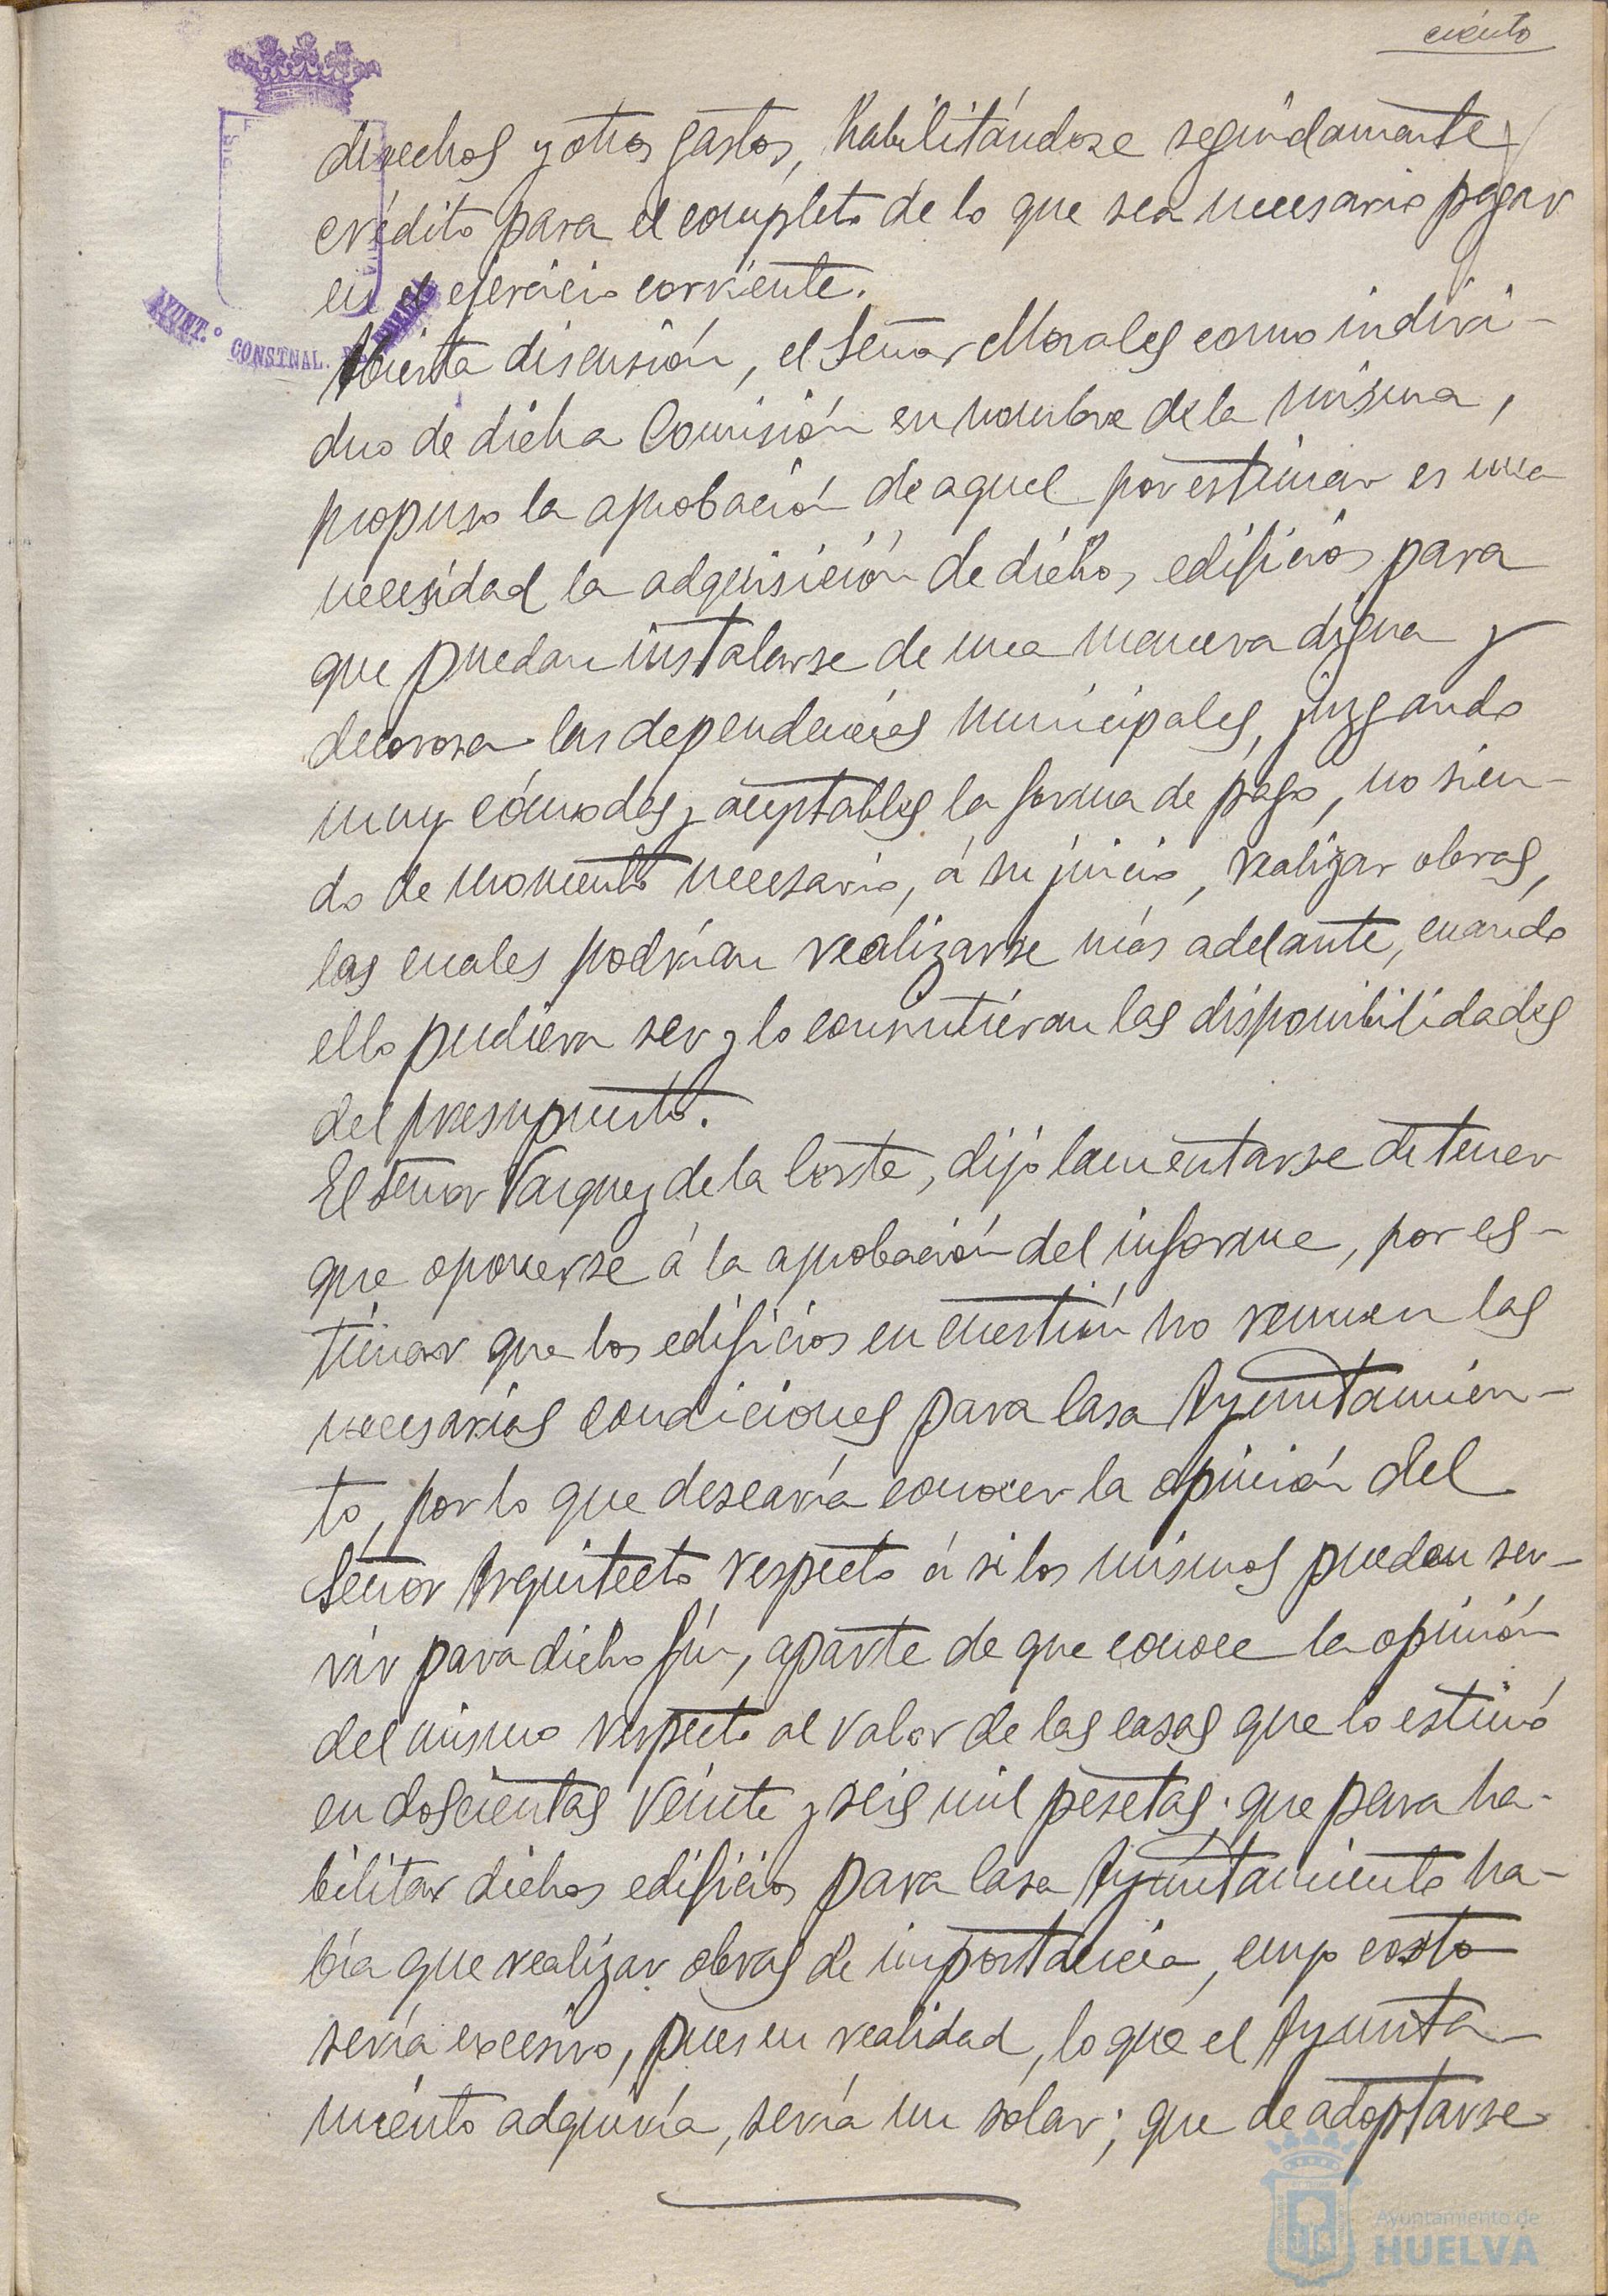 ciento
derechos y otros gastos, habilitándose seguidamente
crédito para el completo de lo que sea necesario pagar
en el ejercicio corriente.
AYUNT.º CONSTNAL. DE HUELVA
Abierta discusión, el Señor Morales como indivi-
duo de dicha Comisión en nombre de la misma,
propuso la aprobación de aquel por estimar es una
necesidad la adquisición de dichos edificios para
que puedan instalarse de una manera digna y
decorosa las dependencias municipales, juzgando
muy cómodas y aceptables la forma de pago, no sien-
do de momento necesario, á su juicio, realizar obras,
las cuales podrían realizarse más adelante, cuando
ello pudiera ser y lo consintieran las disponibilidades
del presupuesto.
El Señor Vazquez de la Corte, dijo lamentarse de tener
que oponerse á la aprobación del informe, por es-
timar que los edificios en cuestión no reunen las
necesarias condiciones para Casa Ayuntamien-
to, por lo que desearía conocer la opinión del
Señor Arquitecto respecto á si los mismos pueden ser-
vir para dicho fín, aparte de que conoce la opinión
del mismo respecto al valor de las casas que lo estimó
en doscientas veinte y seis mil pesetas; que para ha-
bilitar dichos edificios para Casa Ayuntamiento ha-
bía que realizar obras de importancia, cuyo costo
sería excesivo, pues en realidad, lo que el Ayunta-
miento adquiría, sería un solar; que de adoptarse
Ayuntamiento de
HUELVA